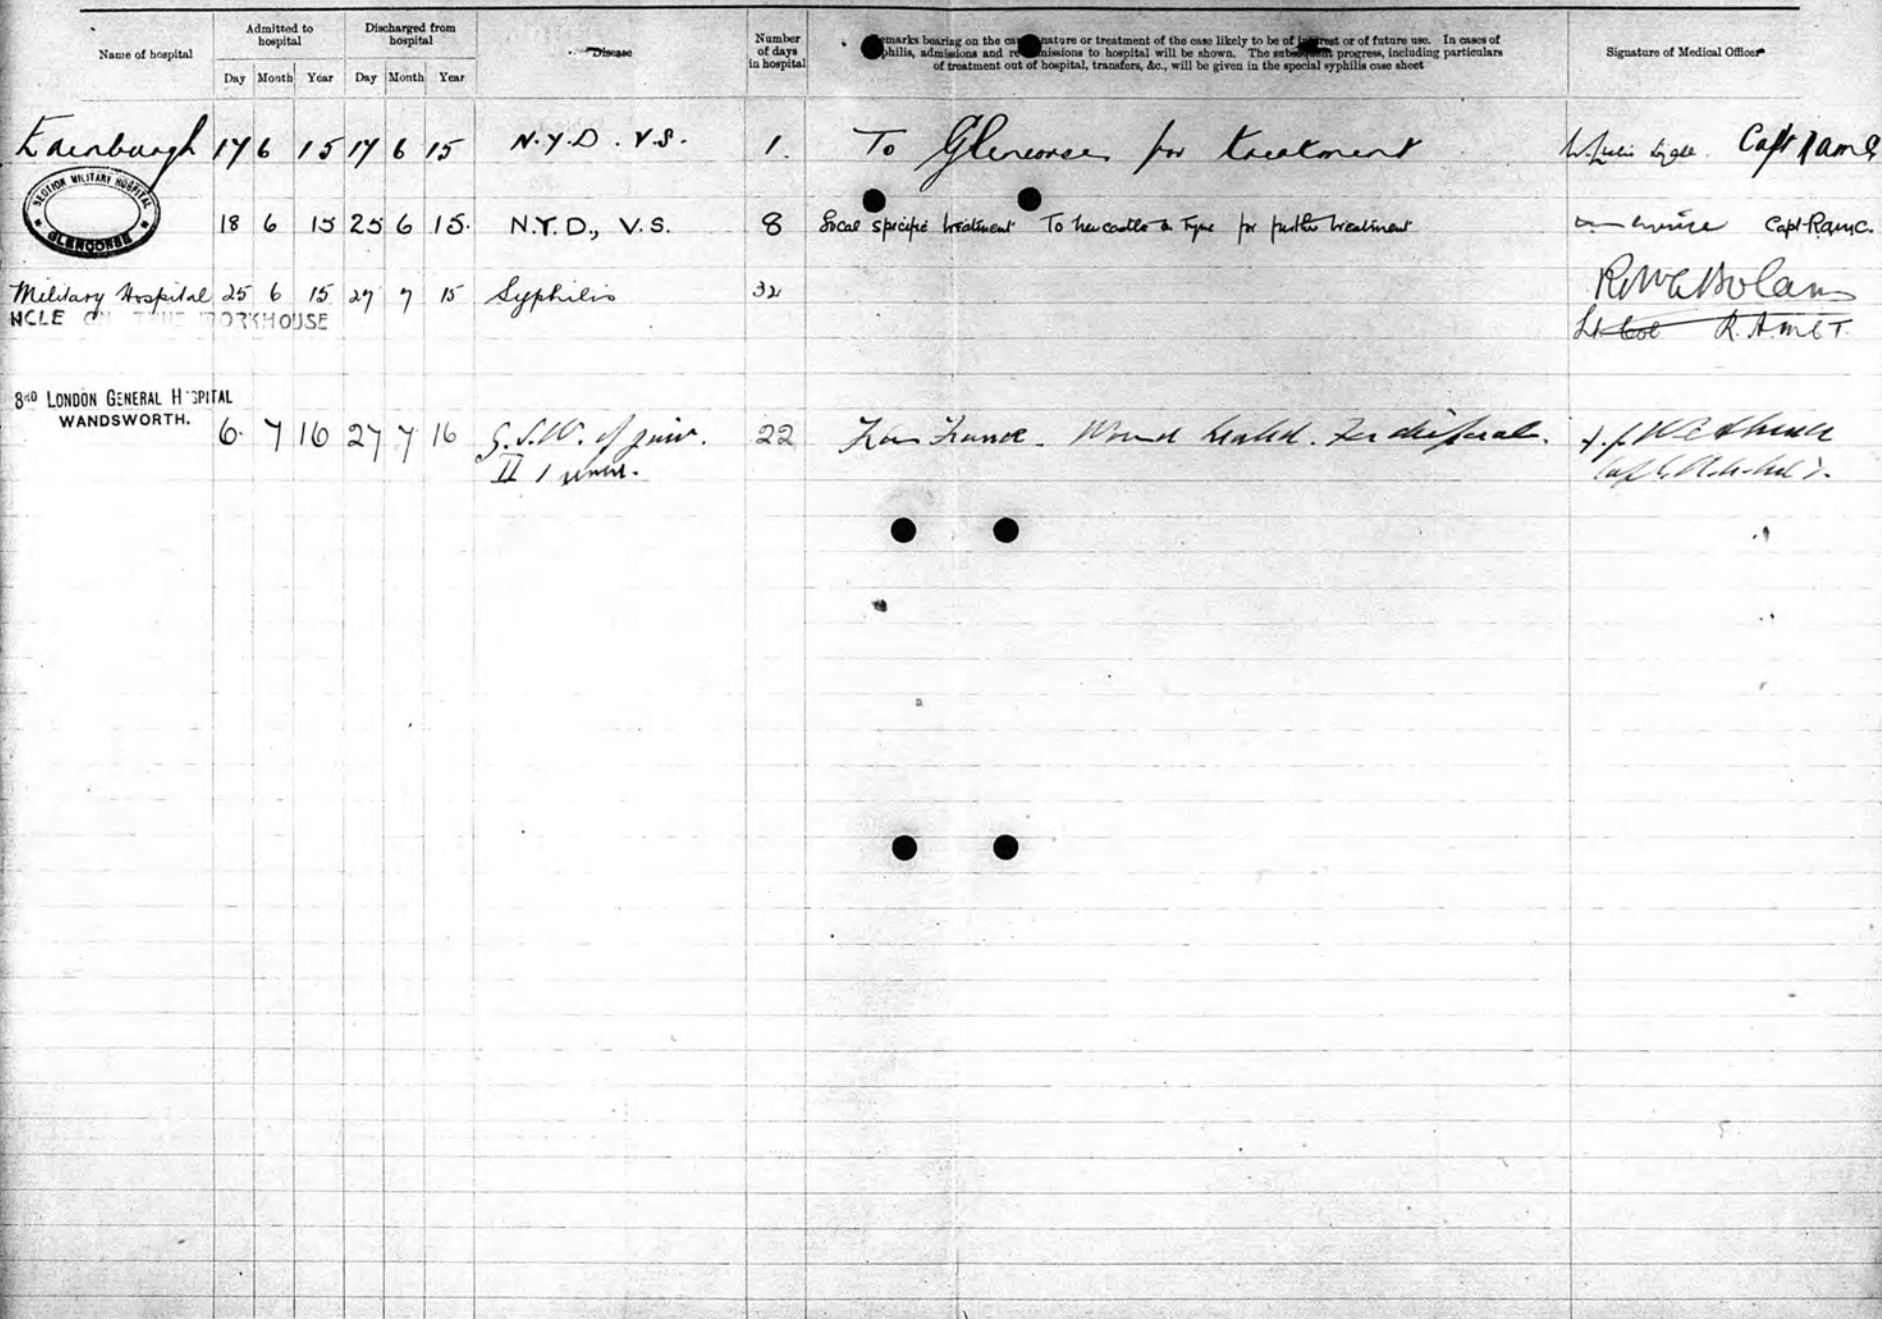 Name of hospital
Admitted to hospital
Discharged from hospital
Disease
Number of days in hospital
Day Month Year Day Month Year
emarks bearing on the ca nature or treatment of the case likely to be of interest or of future use. In cases of
philis, admissions and re missions to hospital will be shown. The subsequent progress, including particulars
of treatment out of hospital, transfers, &c., will be given in the special syphilis case sheet
Signature of Medical Officer
Edinburgh 17 6 15 17 6 15 N.Y.D. V.S. 1. To Glencorse for treatment Capt RAMC
SECTION MILITARY HOSPITAL
GLENCORSE
18 6 15 25 6 15. N.Y.D., V.S. 8 Local specific treatment To Newcastle on Tyne for further treatment Capt RAMC.
Military Hospital 25 6 15 27 7 15 Syphilis 32
NCLE ON TYNE WORKHOUSE
Lt Col R.A.M.C T.
3RD LONDON GENERAL H SPITAL
WANDSWORTH.
6. 7 16 27 7 16 G.S.W. of 22 From France. Wound healed. For disposal.
II 1